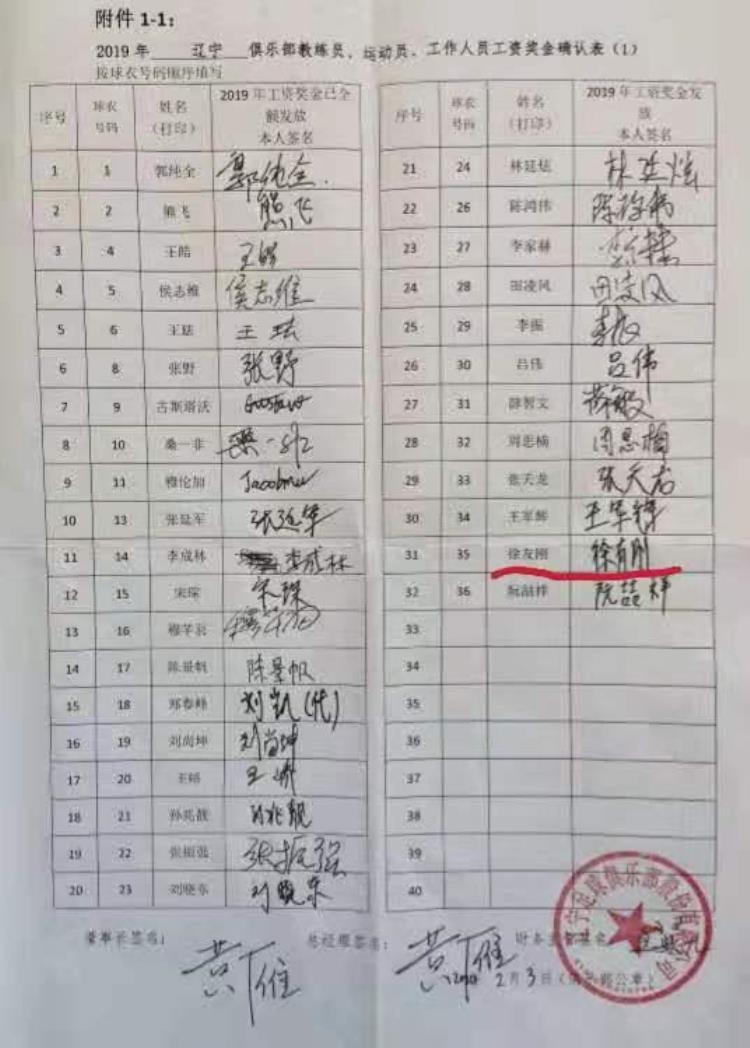 附件 1-1:
2019 年 辽宁 俱乐部教练员、运动员、工作人员工资奖金确认表（1）
按球衣号码顺序填写
序号 球衣号码 姓名（打印） 2019 年工资奖金已全额发放 本人签名
1 1 郭纯全 郭纯全.
2 2 熊飞 熊飞
3 4 王皓 王皓
4 5 侯志維 侯志維
5 6 王珐 王珐
6 8 张野 张野
7 9 古斯塔沃 Gustavo
8 10 桑一非 桑一非
9 11 穆伦加
10 13 张延军 张延军
11 14 李成林 李成林
12 15 宋琛 宋琛
13 16
14 17 陈景帆 陈景帆
15 18 郑春峰 刘凯(代)
16 19 刘尚坤 刘尚坤
17 20
18 21 孙兆靓 孙兆靓
19 22 张振强 张振强
20 23 刘晓东 刘晓东
序号 球衣号码 姓名（打印） 2019 年工资奖金发放 本人签名
21 24 林廷炫 林廷炫
22 26 陈鸿伟
23 27 李家赫
24 28 田凌风 田凌风
25 29 李振 李振
26 30 吕伟 吕伟
27 31 薛智文
28 32 周思楠 周思楠
29 33 张天龙 张天龙
30 34
31 35 徐友刚 徐有刚
32 36 阮喆祥 阮喆祥
33
34
35
36
37
38
39
40
董事长签名: 黄雁 总经理签名: 黄雁 财务主管签名
2月3日（俱乐部公章）